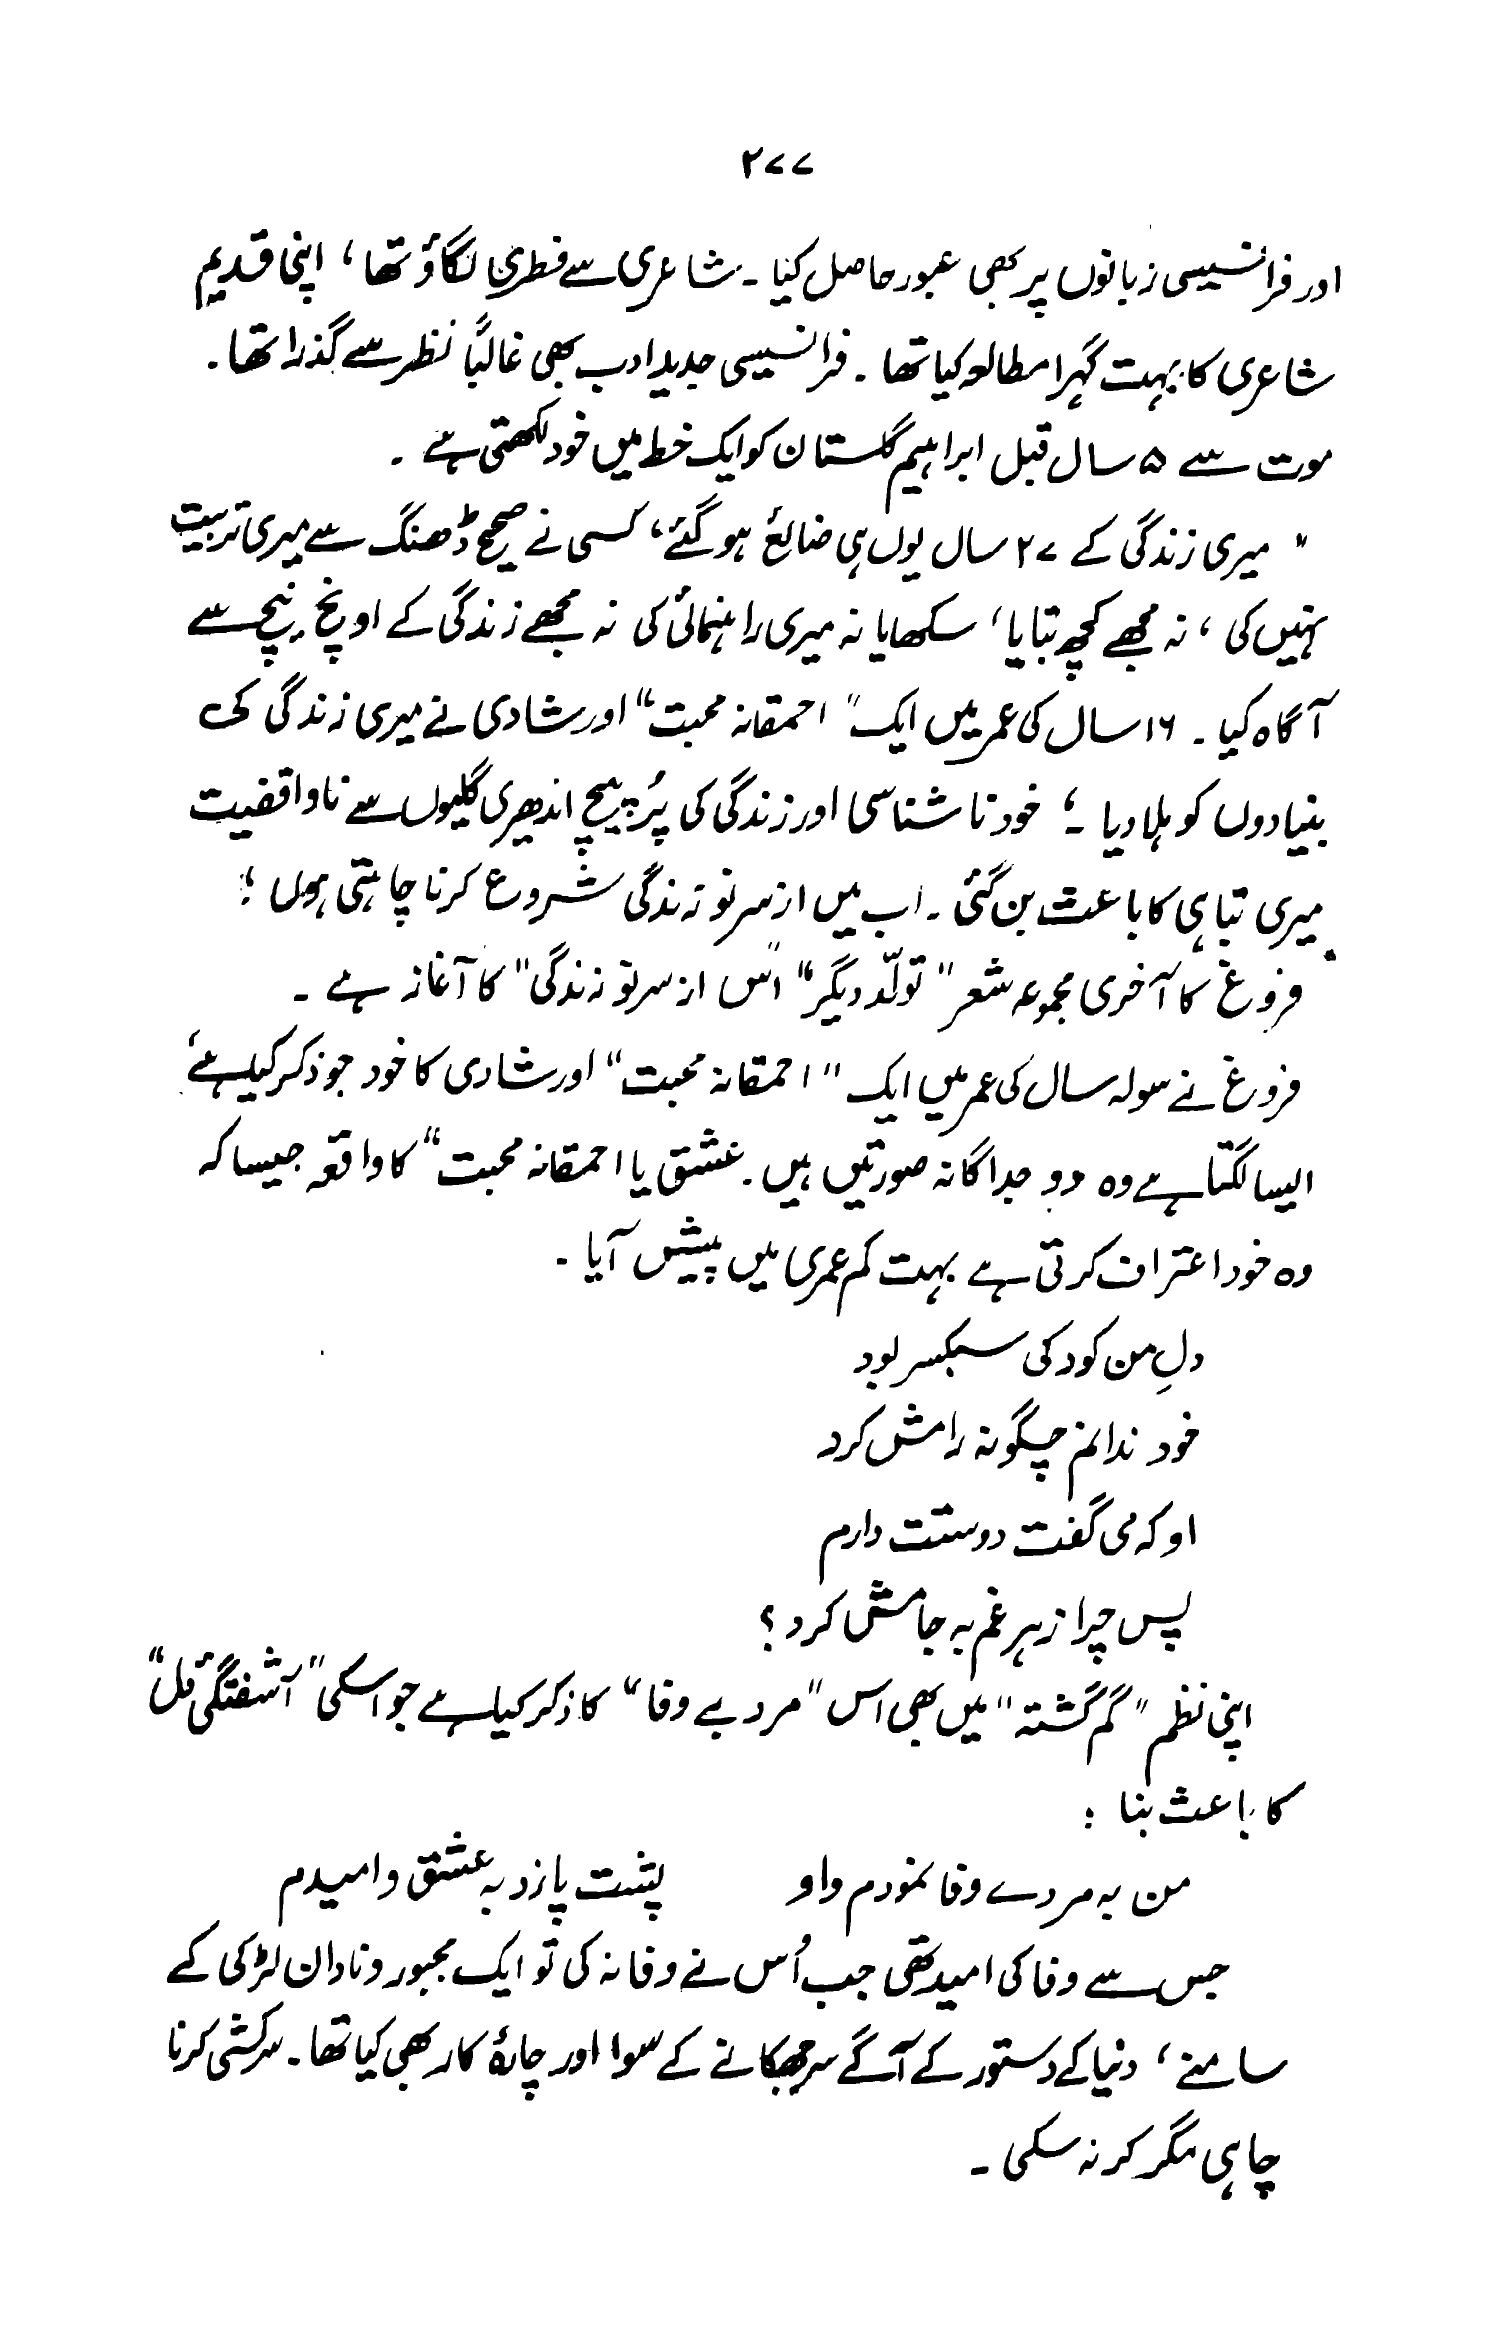 ۲۷۷
اور فرانسیسی زبانوں پر بھی عبور حاصل کیا ۔ شاعری سے فطری لگاؤ تھا ، اپنی قدیم
شاعری کا بہت گہرا مطالعہ کیا تھا ۔ فرانسیسی جدید ادب بھی غالباً نظر سے گذرا تھا ۔
موت سے ۵ سال قبل ابراہیم گلستان کو ایک خط میں خود لکھتی ہے ۔
" میری زندگی کے ۲۷ سال یوں ہی ضائع ہو گئے ، کسی نے صحیح ڈھنگ سے میری تربیت
نہیں کی ، نہ مجھے کچھ بتایا ، سکھایا نہ میری راہنمائی کی نہ مجھے زندگی کے اونچ نیچ سے
آگاہ کیا ۔ ۱۶ سال کی عمر میں ایک " احمقانہ محبت " اور شادی نے میری زندگی کی
بنیادوں کو ہلا دیا ۔ ؛ خود ناشناسی اور زندگی کی پُر پیچ اندھیری گلیوں سے ناواقفیت
میری تباہی کا باعث بن گئی ۔ اب میں از سر نو زندگی شروع کرنا چاہتی ہوں ؛
فروغ کا آخری مجموعہ شعر " تولّد دیگر " اس " از سر نو زندگی " کا آغاز ہے ۔
فروغ نے سولہ سال کی عمر میں ایک " احمقانہ محبت " اور شادی کا خود جو ذکر کیا ہے ،
ایسا لگتا ہے وہ دو جداگانہ صورتیں ہیں ۔ عشق یا احمقانہ محبت " کا واقعہ جیسا کہ
وہ خود اعتراف کرتی ہے بہت کم عمری میں پیش آیا ۔
دلِ من کودکی سبکسر بود
خود ندانم چگونہ رامش کرد
او کہ می گفت دوستت دارم
پس چرا زہر غم بہ جامش کرد ؟
اپنی نظم " گم گشتہ " میں بھی اس " مرد بے وفا " کا ذکر کیا ہے جو اسکی " آشفتگیٔ دل "
کا باعث بنا :
من بہ مردے وفا نمودم و او پشت پا زد بہ عشق و امیدم
جس سے وفا کی امید تھی جب اُس نے وفا نہ کی تو ایک مجبور و نادان لڑکی کے
سامنے ، دنیا کے دستور کے آگے سر جھکانے کے سوا اور چارۂ کار بھی کیا تھا ۔ سرکشی کرنا
چاہی مگر کر نہ سکی ۔